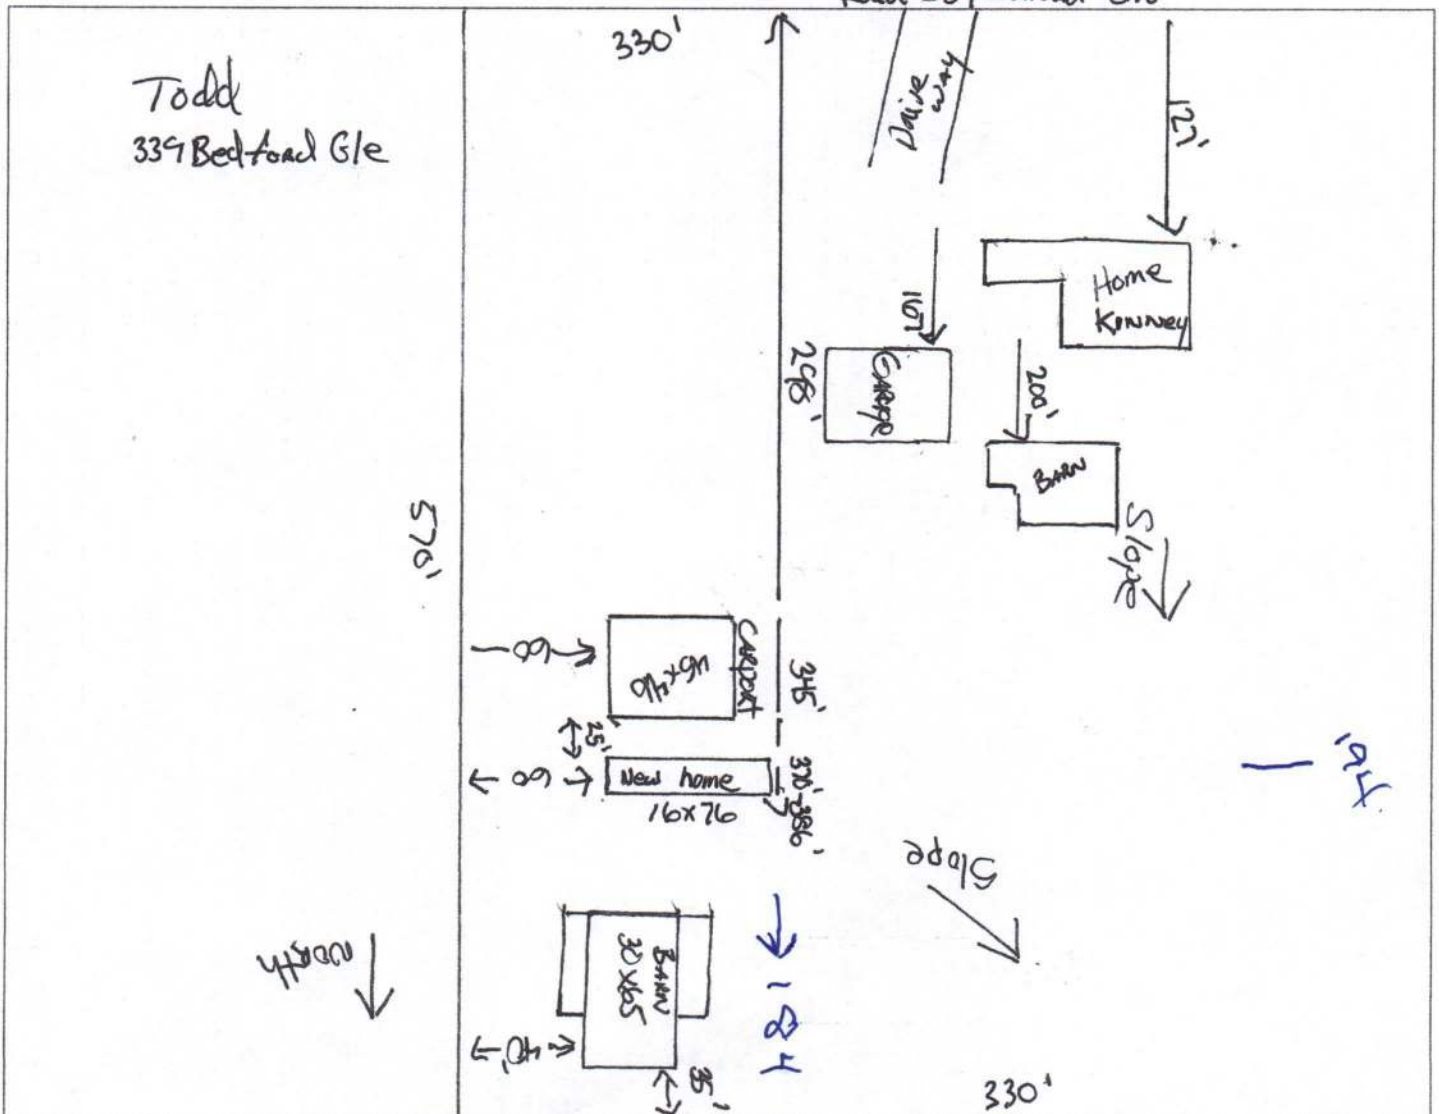 330'
Todd
339 Bedford Gle
Drive way
127'
Home
Kinney
167
Garage
298'
200'
BARN
Slope
570'
60
CARPORT
345'
25'
60
New home
16x76
370'-386'
Slope
North
BARN
30x65
184
40'
35'
330'